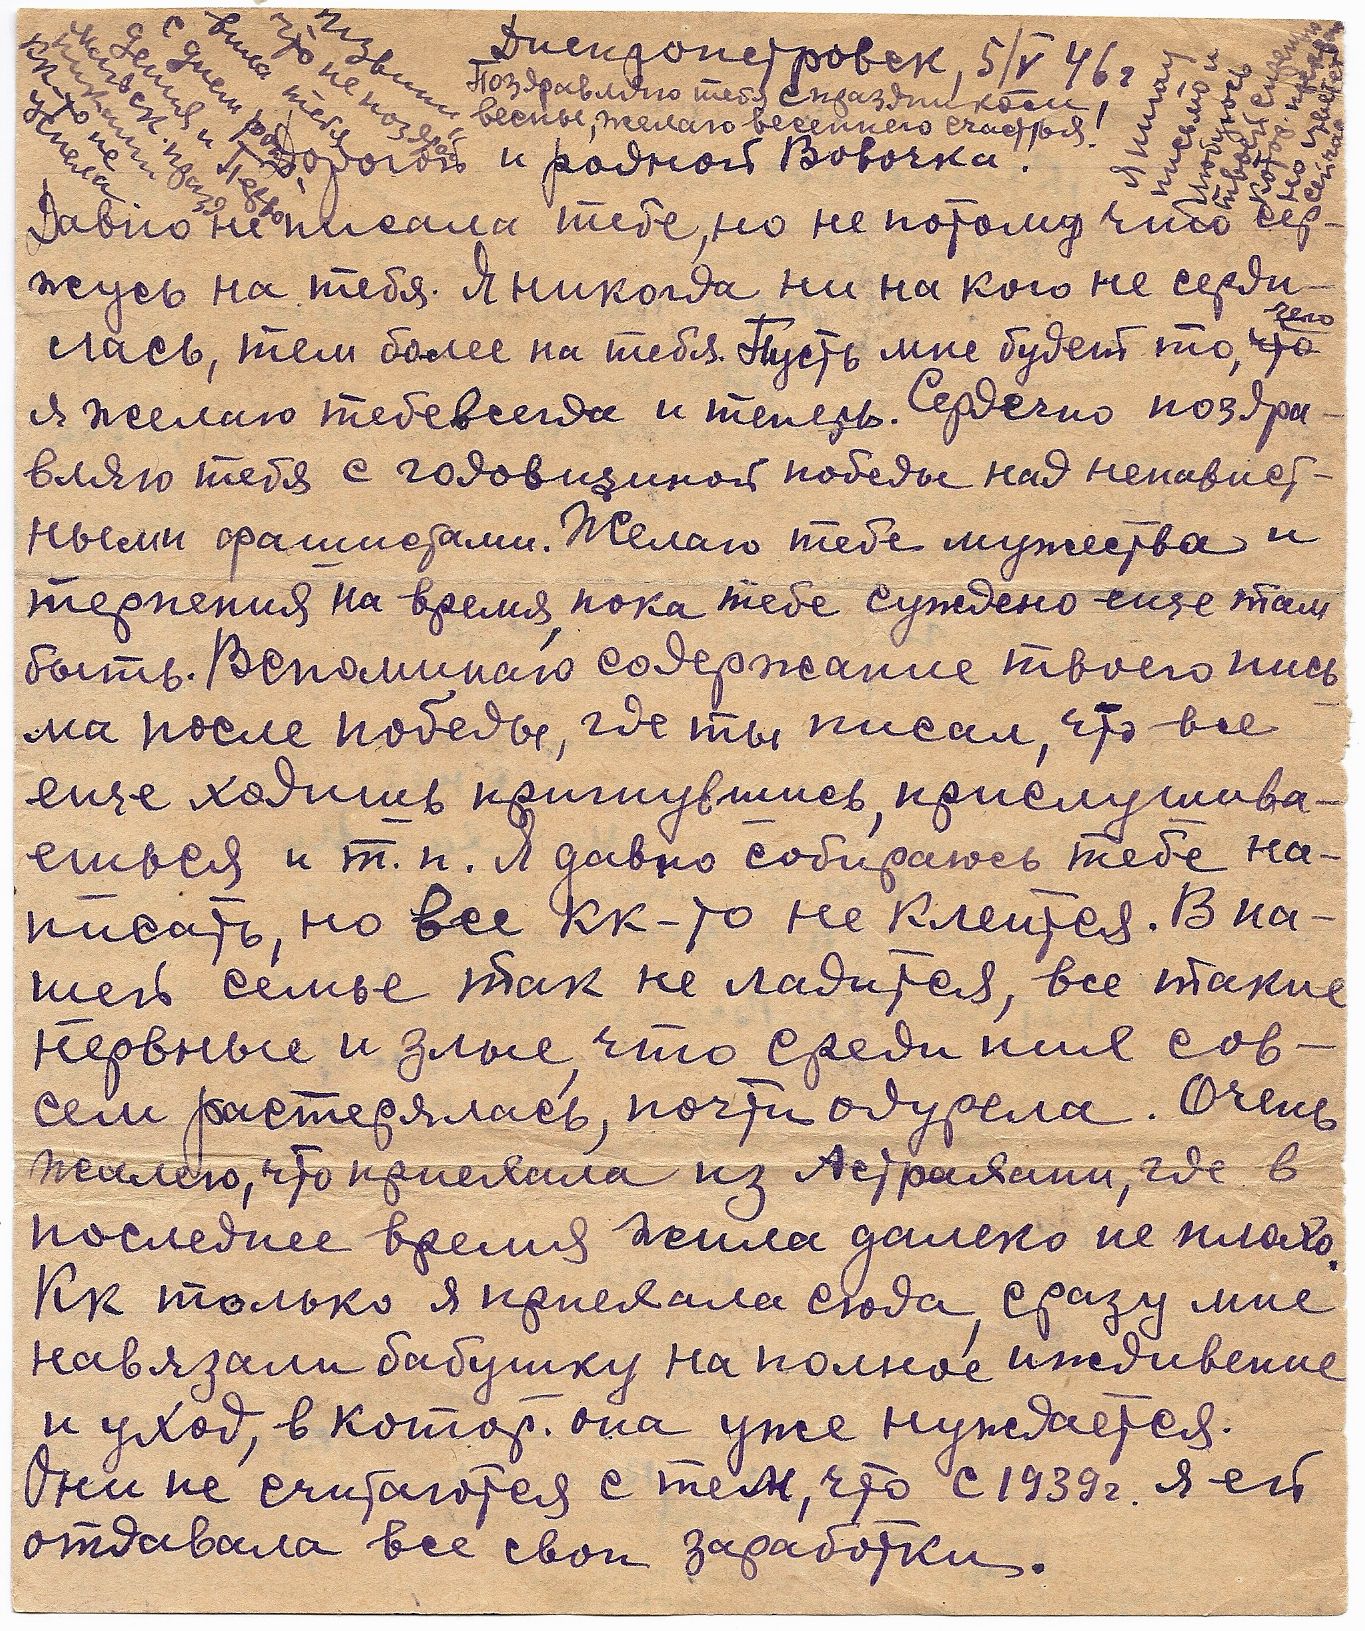 Днепропетровск, 5/V 46 г
Поздравляю тебя с праздником
весны, желаю весеннего счастья!
Дорогой и родной Вовочка!
Давно не писала тебе, но не потому что сер-
жусь на тебя. Я никогда ни на кого не серди-
лась, тем более на тебя. Пусть мне будет то, чего
я желаю тебе всегда и теперь. Сердечно поздра-
вляю тебя с годовщиной победы над ненавист-
ными фашистами. Желаю тебе мужества и
терпения на время, пока тебе суждено еще там
быть. Вспоминаю содержание твоего пись
ма после победы, где ты писал, что все
еще ходишь пригнувшись, прислушива-
ешься и т. п. Я давно собираюсь тебе на-
писать, но все кк-то не клеится. В на-
шей семье так не ладится, все такие
нервные и злые, что среди них сов-
сем растерялась, почти одурела. Очень
жалею, что приехала из Астрахани, где в
последнее время жила далеко не плохо.
Кк только я приехала сюда, сразу мне
навязали бабушку на полное иждивение
и уход, в котор. она уже нуждается.
Они не считаются с тем, что с 1939 г. я ей
отдавала все свои заработки.
Извини
что не поздра
вила тебя
с днем рож
дения и Перво
майск. празд
никами
кк-то не
успела
Я пишу
письмо и
любуюсь
твоей
котор.
но
сейчас